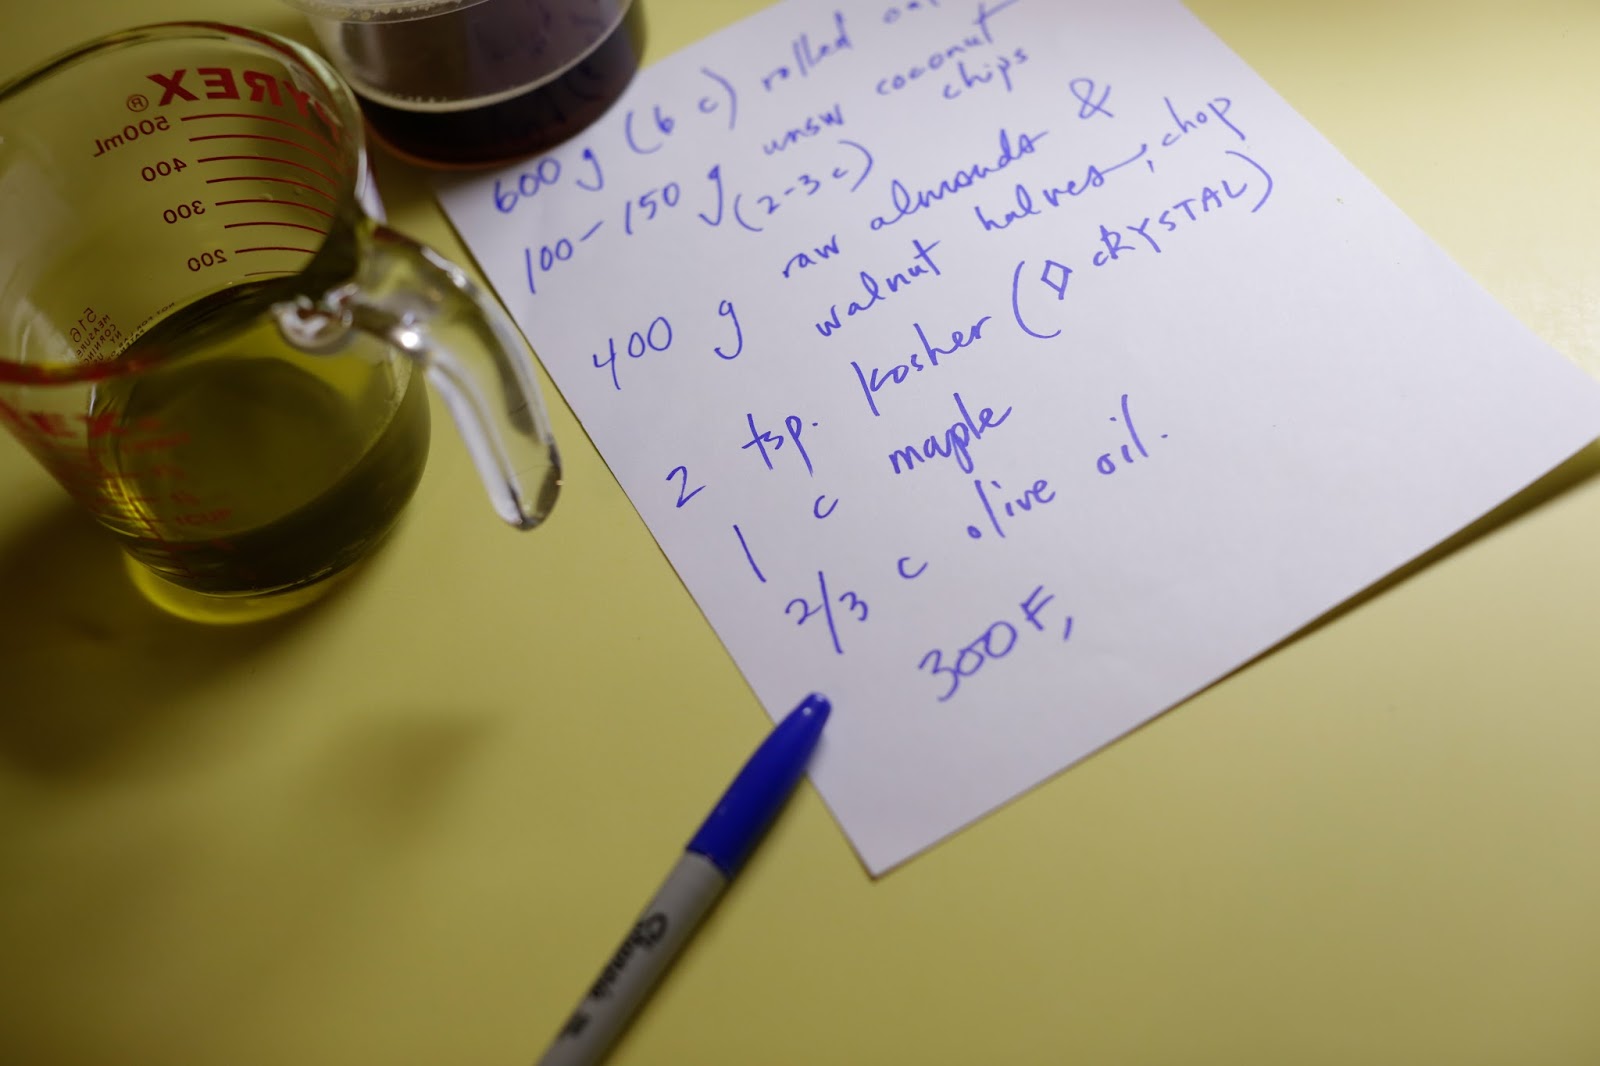 PYREX®
500mL
400
300
200
516
1 CUP
600 g (6 c) rolled
100-150 g unsw coconut
(2-3 c) chips
400 g raw almonds &
walnut halves, chop
2 tsp. kosher (◇ CRYSTAL)
1 c maple
2/3 c olive oil.
300F,
Sharpie